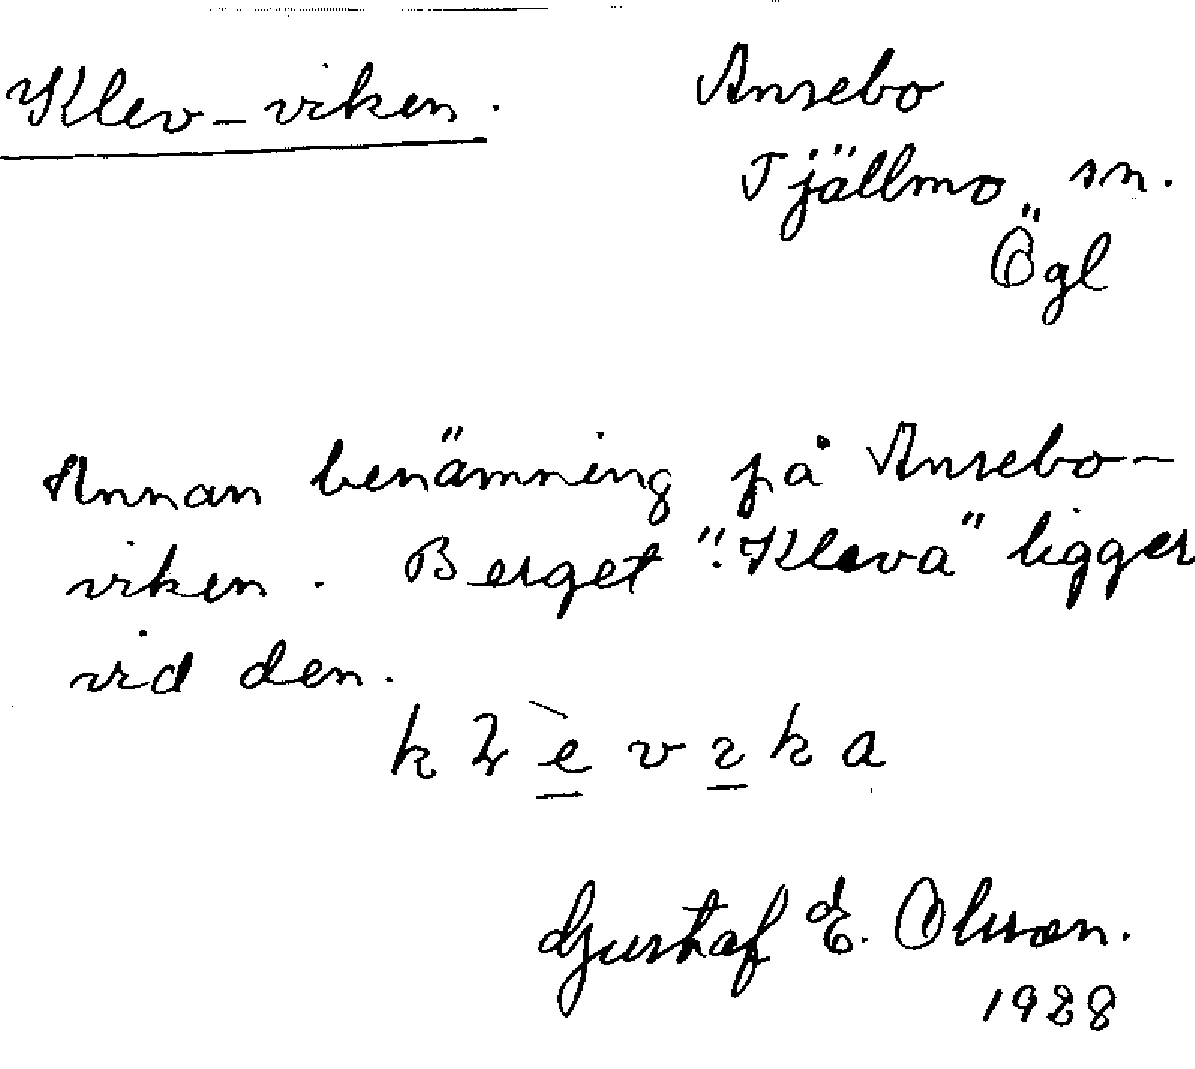 Klev-viken.
Ansebo
Tjällmo sn.
Ögl
Annan benämning på Ansebo-
viken. Berget "Kleva" ligger
vid den.
Gustaf E. Olsson.
1928